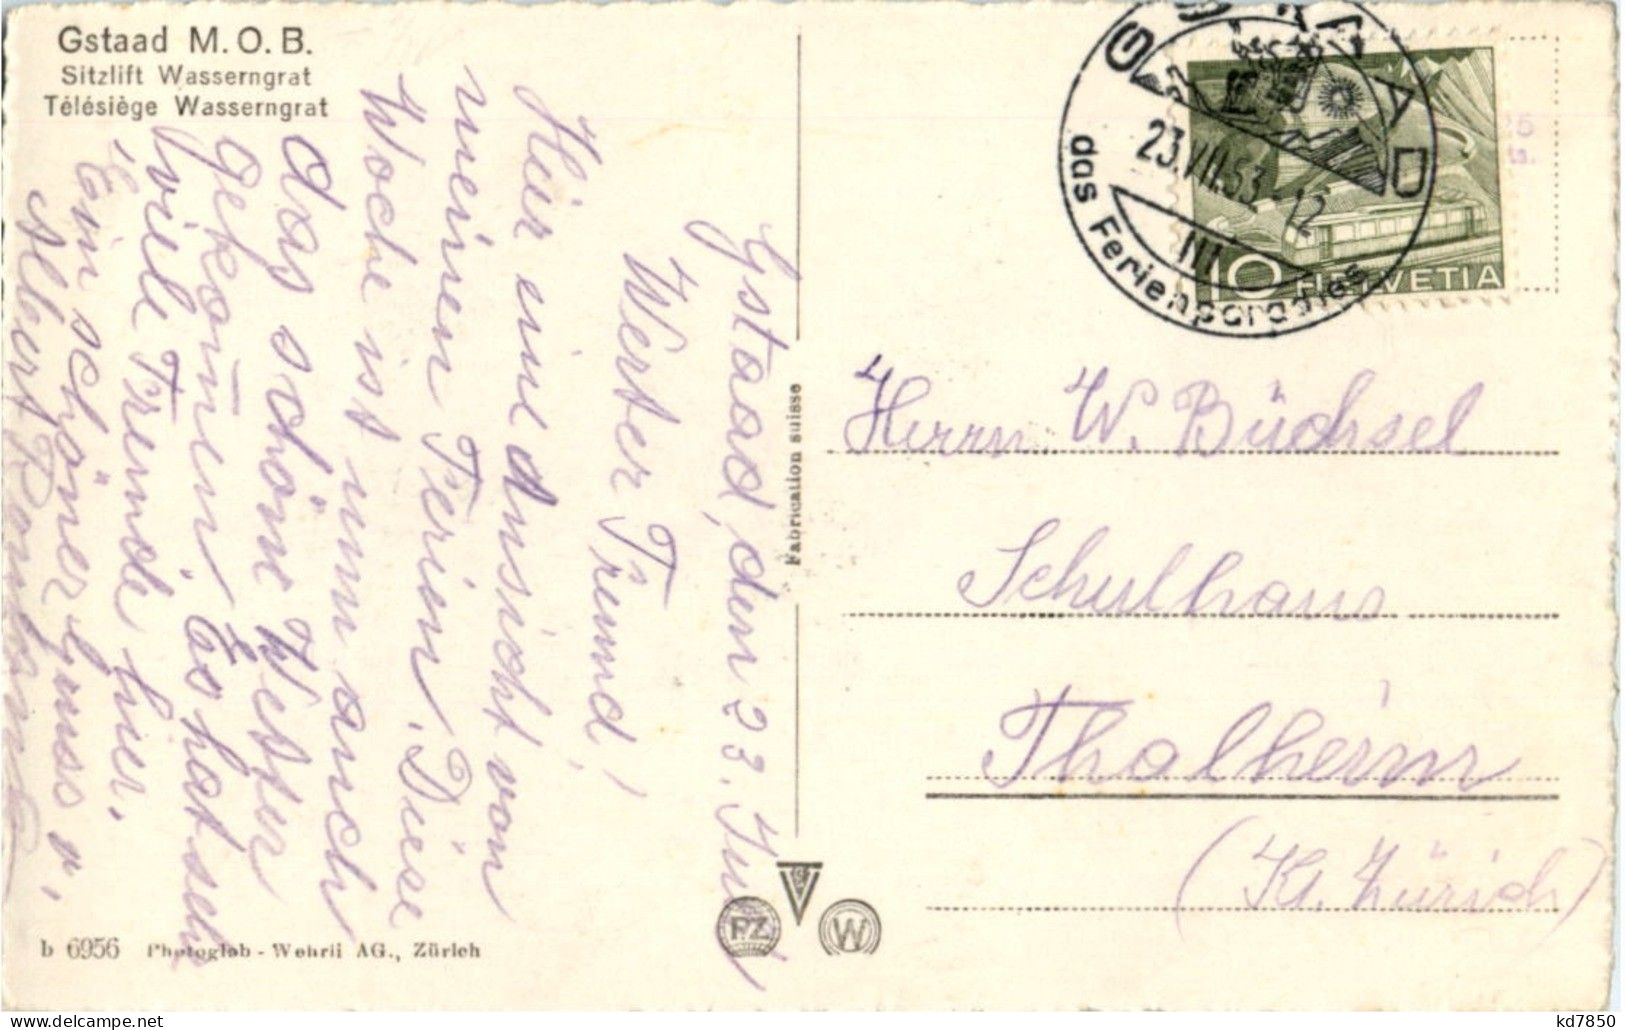 Gstaad M.O.B.
Sitzlift Wasserngrat
Télésiège Wasserngrat
Gstaad, den 23. Juli
Werter Freund!
Hier eine Ansicht von
meinen Ferien. Diese
Woche ist nun auch
das schöne Wetter
gekom̄en. Es hat sehr
viele Fremde hier.
Ein schöner Gruss v.
Albert
b 6956 Photoglob-Wehrli AG., Zürich
Fabrication suisse
PZ
V
W
GSTAAD
23.VII.53-12
III
das Ferienparadies
10 HELVETIA
Herrn W. Büchsel
Schulhaus
Thalheim
(Kt. Zürich)
kd7850